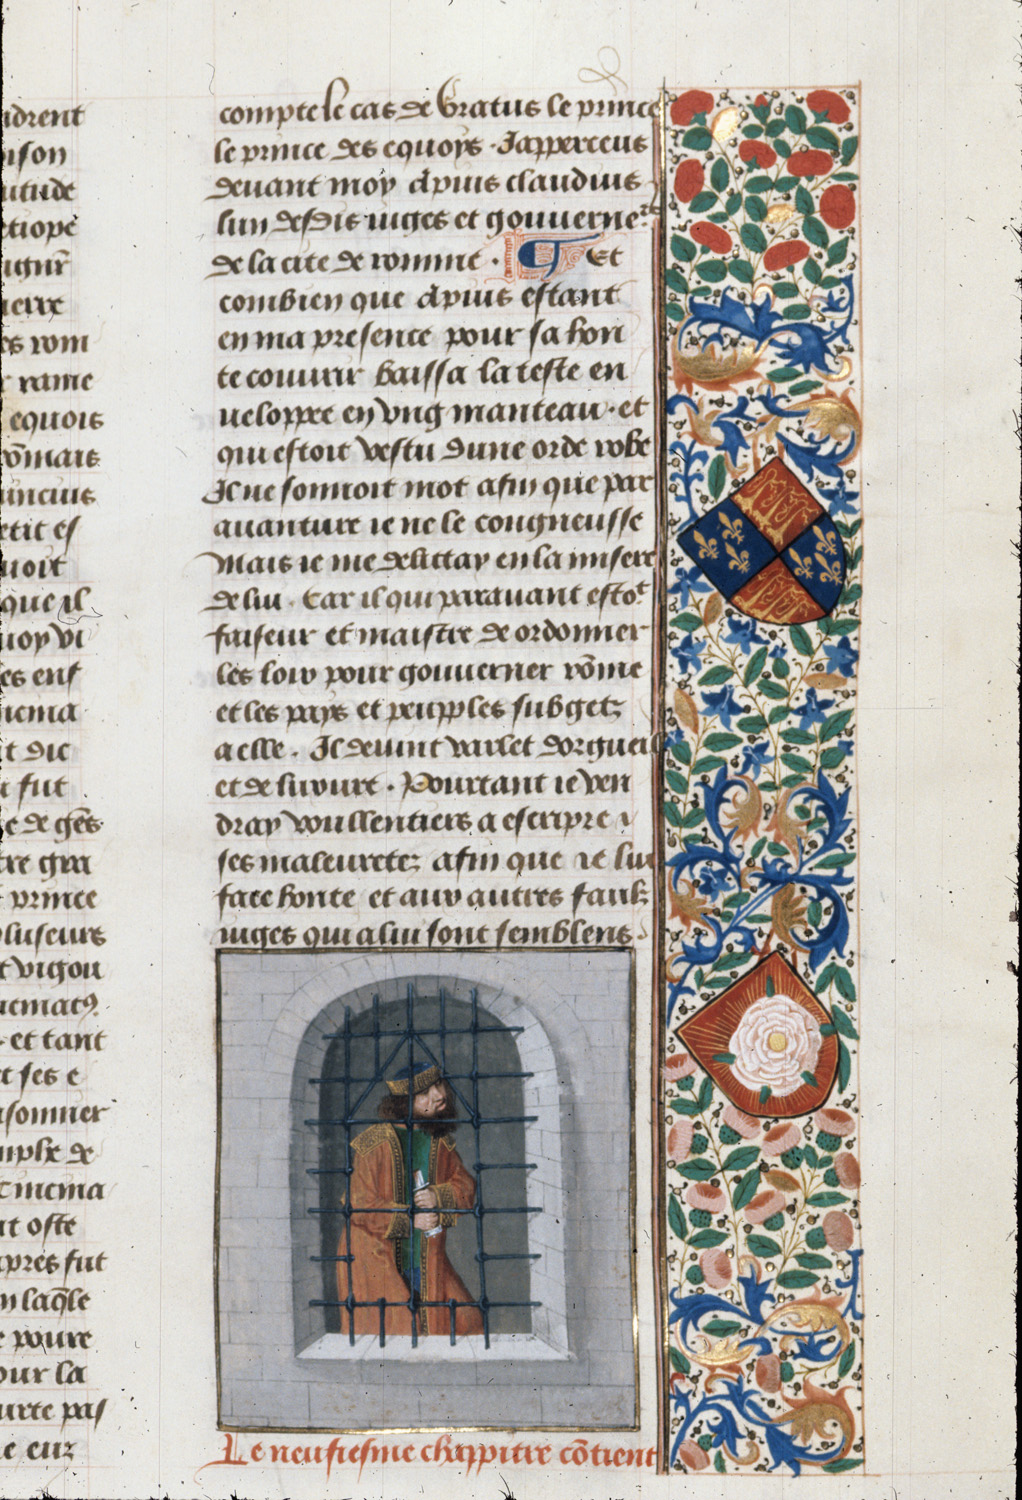 ndrent
ison
titude
etiope
ugur̄
ierre
es rom
rame
equois
rōmais
uncius
etit es
uoit
que il
uoy vi
es ens
nema
it dit
fut
e de gēs
tre gra
prince
pluseurs
t vigou
nemacꝰ
et tant
t ses e
isonnier
mple de
t niema
it oste
apres fut
n laq̄le
e poure
our la
urte pas
e eur
compte le cas de Gratus le prince
le prince des equoys · Japperceus
deuant moy Apius claudius
lun des dis iuges et gouuerneʳˢ
de la cite de romme · Et
combien que Apius estant
en ma presence pour sa hon
te couurir baissa la teste en
ueloppee en vng manteau · et
qui estoit vestu dune orde robe
Il ne sonnoit mot afin que par
auanture ie ne le congneusse
Mais ie me delittay en la misere
de lui · Car il qui parauant estoᵗ
faiseur et maistre de ordonner
les loix pour gouuerner rōme
et les pays et peupples subgetz
a elle · Il deuint varlet dorgueil
et de luxure · Pourtant ie ven
dray voullentiers a escripre
ses maleuretez afin que ie lui
face honte et aux autres faulx
iuges qui a lui sont semblens ·
Le neufiesme chappitre cōtient